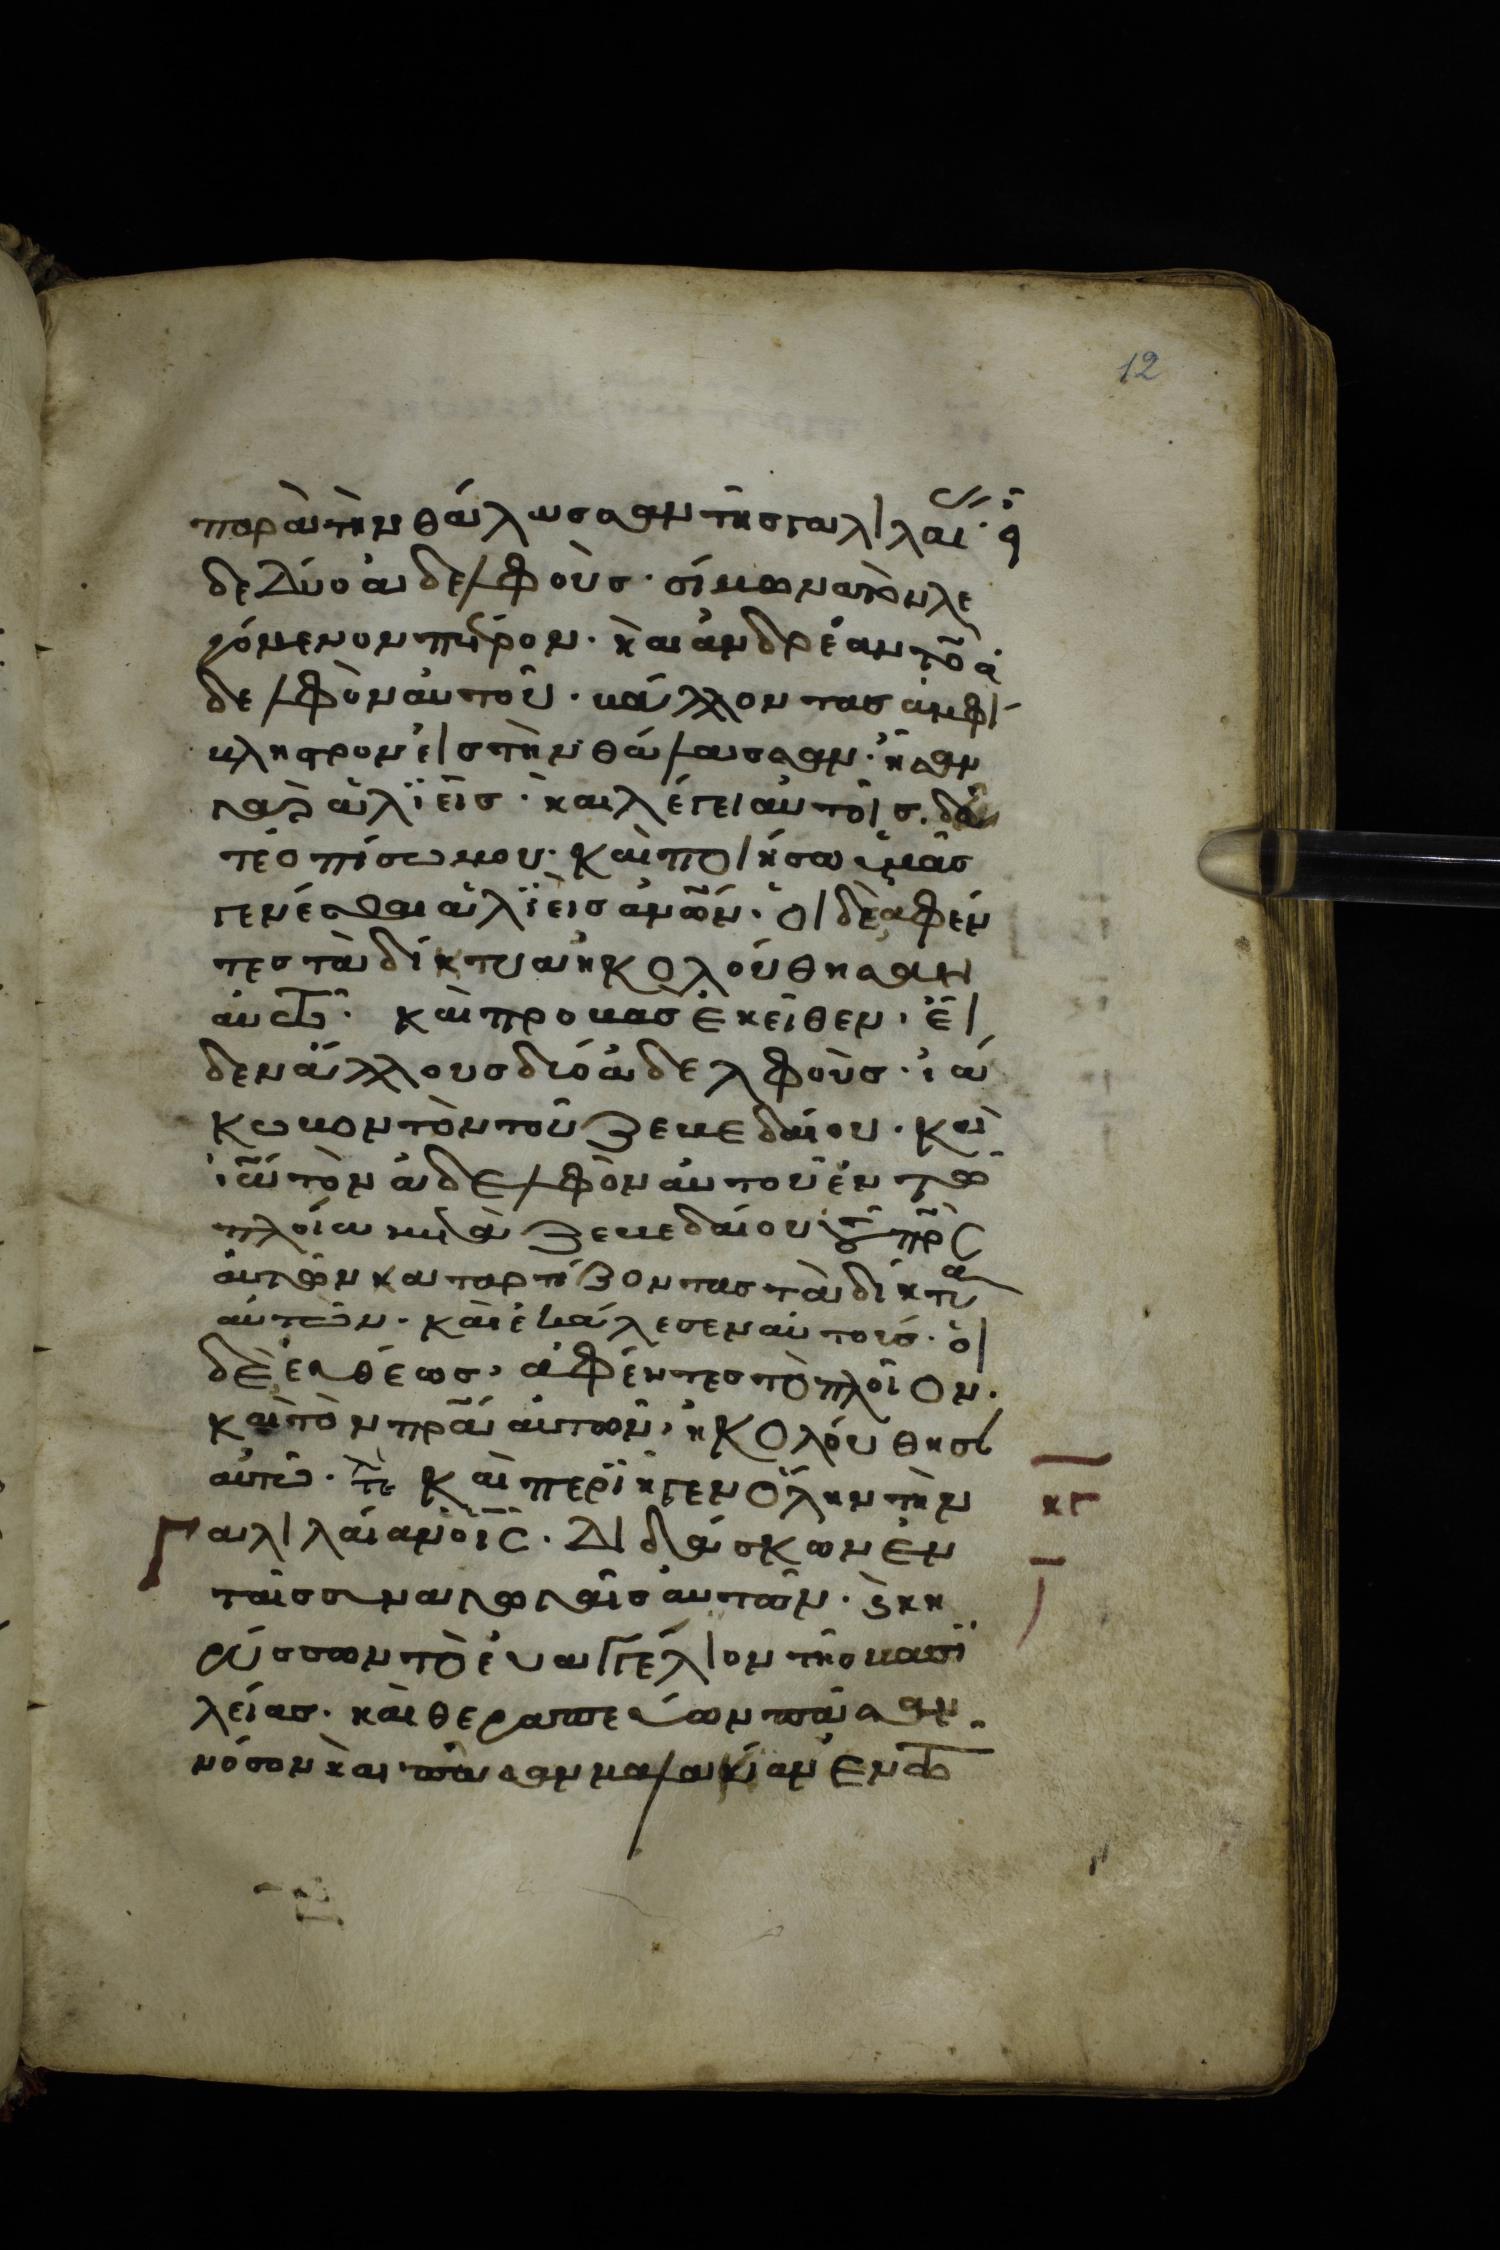 12
παρὰ τὴν θάλασσαν τῆς γαλιλαί εἶ
δε δύο ἀδελφοὺς· σίμωνα τὸν λε
γόμενον πέτρον· καὶ ἀνδρέαν τὸ ἀ
δελφὸν αὐτοῦ· βάλλοντας ἀμφί
βληστρον εἰς τὴν θάλασσαν· ἦσαν
γὰρ ἁλϊεῖς· καὶ λέγει αὐτοῖς. δεῦ
τε ὀπίσω μου· καὶ ποιήσω ὑμᾶς
γενέσθαι ἁλϊεῖς ἀνων· οἱ δὲ ἀφέν
τες τὰ δίκτυα ἠκολούθησαν
αὐτῶ· καὶ προβὰς ἐκεῖθεν· εἶ
δεν ἄλλους δύο ἀδελφοὺς· ἰά
κωβον τὸν τοῦ ζεβεδαίου· καὶ
ἰω τὸν ἀδελφὸν αὐτοῦ ἐν τῶ
πλοίω μετὰ ζεβεδαίου τοῦ πρς
αὐτῶν καταρτίζοντας τὰ δίκτυα
αὐτῶν· καὶ ἐκάλεσεν αὐτούς· οἱ
δὲ εὐθέως, ἀφέντες τὸ πλοῖον·
καὶ τὸν πρα αὐτῶν, ἠκολούθησα
αὐτῶ· τε καὶ περιῆγεν ὅλην τὴν
γαλιλαίαν ὁ ις· διδάσκων ἐν
ταῖς συναγωγαῖς αὐτῶν· καὶ κη
ρύσσων τὸ εὐαγγέλιον τῆς βασι
λείας· καὶ θεραπεύων πᾶσαν
νόσον καὶ πᾶσαν μαλακίαν ἐν τῶ
κγ